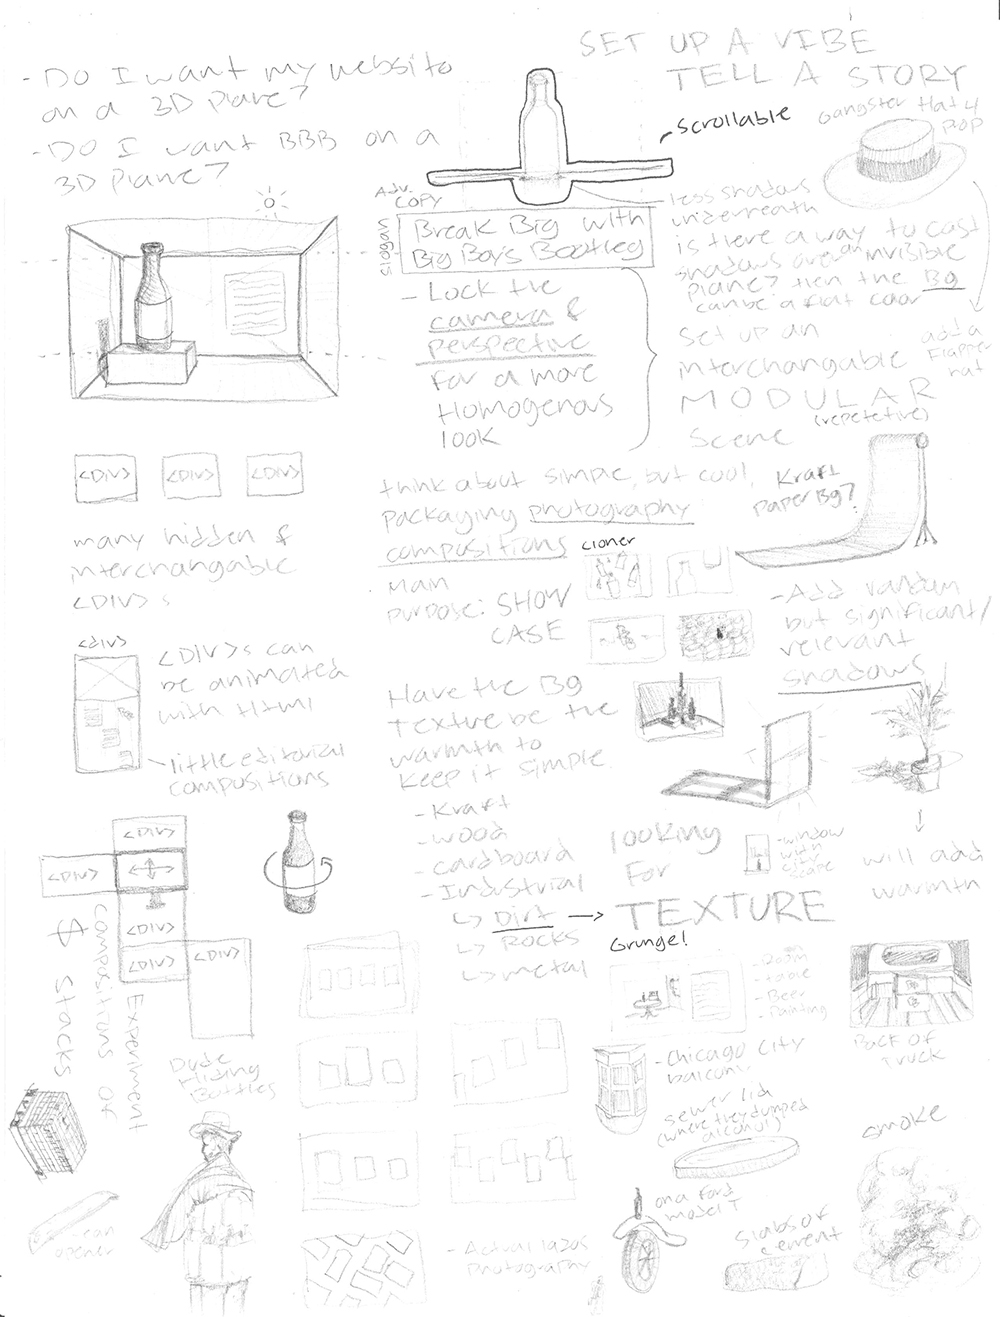 - Do I want my website
on a 3D Plane?
- Do I want BBB on a
3D Plane?
SET UP A VIBE
TELL A STORY
scrollable
Gangster Hat 4
Prop
add a
Flapper
hat
Adv.
COPY
slogan
Break Big with
Big Boy's Bootleg
- Lock the
camera &
perspective
for a more
Homogenous
look
less shadows
underneath
is there a way to cast
shadows over an invisible
plane? then the Bg
can be a flat color
set up an
interchangable
MODULAR
(repetetive)
scene
<DIV>
<DIV>
<DIV>
many hidden &
interchangable
<DIV>s
think about simple, but cool,
packaging photography
compositions
cloner
main
purpose: SHOW
CASE
Kraft
Paper Bg?
- Add random
but significant/
relevant
shadows
<div>
<DIV>s can
be animated
with Html
- little editorial
compositions
Have the Bg
Texture be the
warmth to
keep it simple.
- Kraft
- wood
- cardboard
- Industrial
↳ Dirt →
↳ Rocks
↳ metal
looking
for
TEXTURE
Grunge!
- window
with
city
scape
will add
warmth
<DIV>
<DIV>
<DIV>
<DIV>
<DIV>
Experiment
compositions of
$ stacks
Dude
Hiding
Bottles
- Room
- table
- Beer
- Painting
Back of
Truck
- Chicago City
balcony
sewer lid
(where they dumped
alcohol)
smoke
on a ford
model T
slabs of
cement
- can
opener
- Actual 1920s
photography